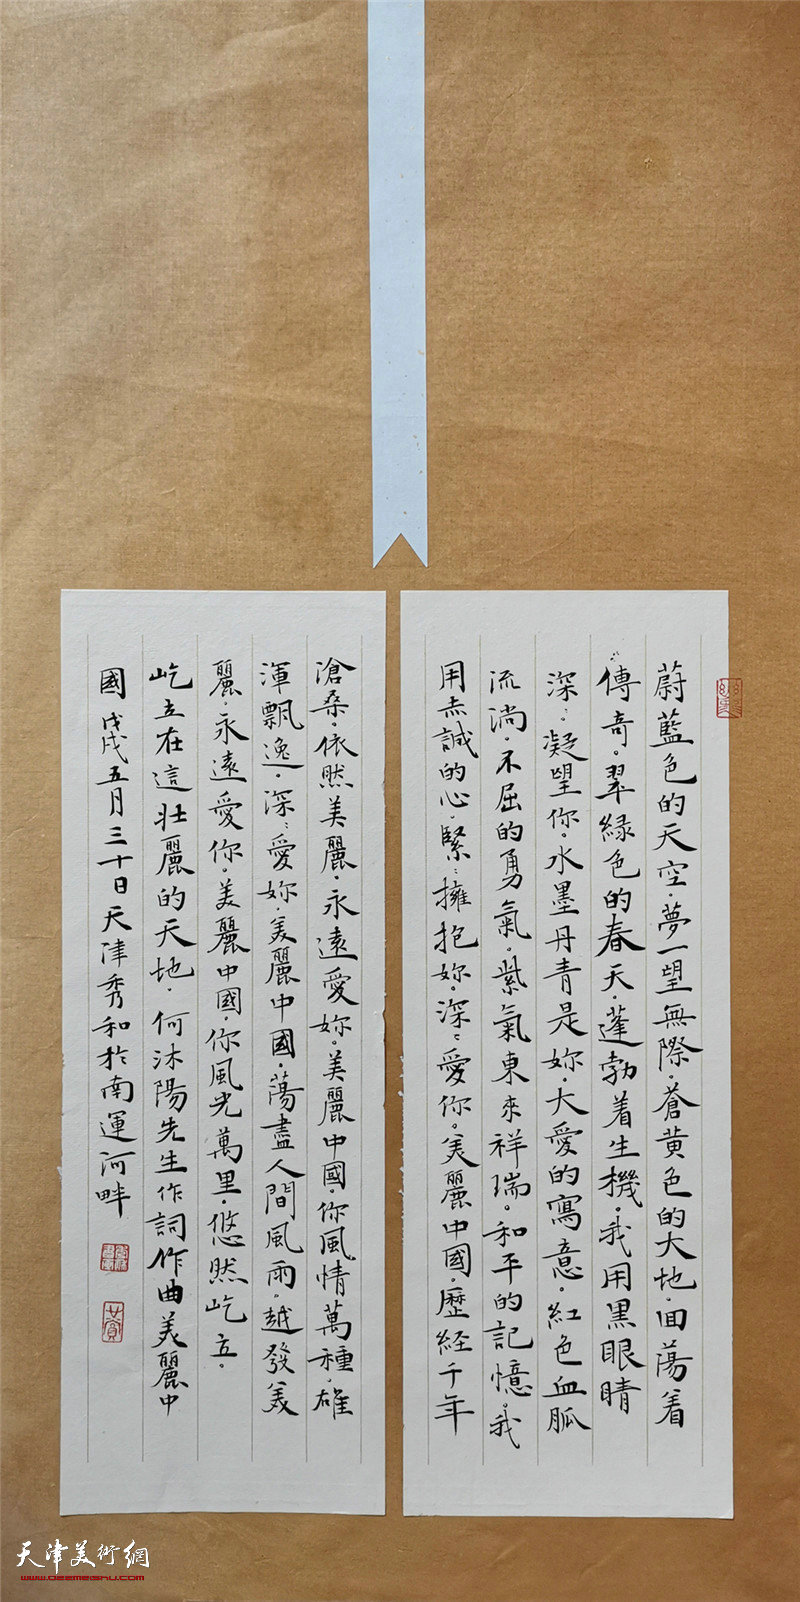 蔚藍色的天空。夢一望無際。蒼黃色的大地。回蕩着
傳奇。翠緑色的春天。蓬勃着生機。我用黑眼睛
深：凝望你。水墨丹青是妳。大愛的寫意。紅色血胍
流淌。不屈的勇氣。紫氣東來祥瑞。和平的記憶。我
用赤誠的心。緊：擁抱妳。深：愛你。美麗中國。歷経千年
滄桑。依然美麗。永遠愛妳。美麗中國。你風情萬種。雄
渾飄逸。深：愛妳。美麗中國。蕩盡人間風雨。越發美
麗。永遠愛你。美麗中國。你風光萬里。悠然屹立。
屹立在這壯麗的天地。何沐陽先生作詞作曲美麗中
國 戊戌五月三十日天津秀和於南運河畔
天津美術網
www.022meishu.com